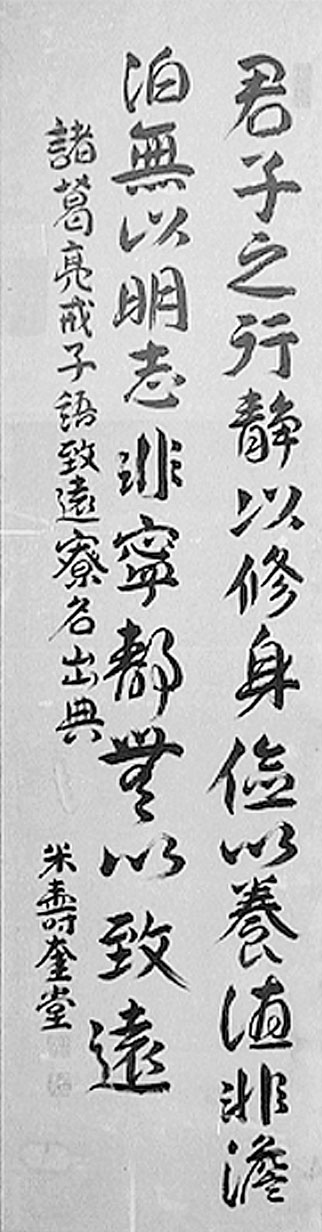 君子之行静以修身儉以養徳非澹
泊無以明志非寧静無以致遠
諸葛亮戒子語致遠寮名出典
米壽奎堂